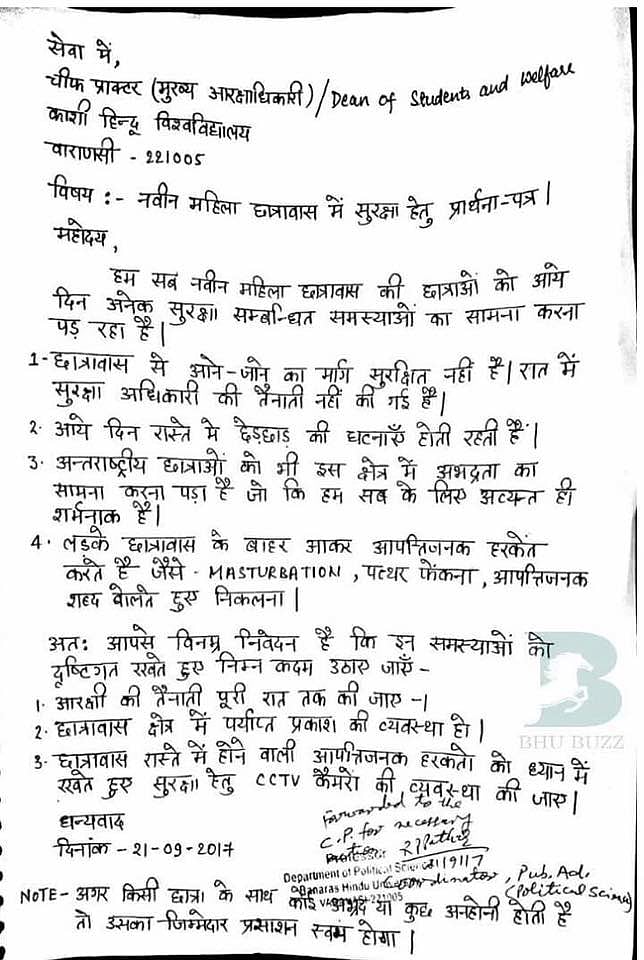 सेवा में,
चीफ प्राक्टर (मुख्य आरक्षाधिकारी)/Dean of Students and Welfare
काशी हिन्दू विश्वविद्यालय
वाराणसी - 221005
विषय :- नवीन महिला छात्रावास में सुरक्षा हेतु प्रार्थना-पत्र |
महोदय,
हम सब नवीन महिला छात्रावास की छात्राओं को आये
दिन अनेक सुरक्षा सम्बन्धित समस्याओं का सामना करना
पड़ रहा है |
1- छात्रावास से आने-जाने का मार्ग सुरक्षित नहीं है | रात में
सुरक्षा अधिकारी की तैनाती नहीं की गई है |
2. आये दिन रास्ते मे छेड़छाड़ की घटनाएँ होती रहती हैं |
3. अन्तराष्ट्रीय छात्राओं को भी इस क्षेत्र में अभद्रता का
सामना करना पड़ा है जो कि हम सब के लिए अत्यन्त ही
शर्मनाक है |
4. लड़के छात्रावास के बाहर आकर आपत्तिजनक हरकतें
करते है जैसे - MASTURBATION, पत्थर फेंकना, आपत्तिजनक
शब्द बोलते हुए निकलना |
अतः आपसे विनम्र निवेदन है कि इन समस्याओं को
दृष्टिगत रखते हुए निम्न कदम उठाए जाएँ -
1. आरक्षी की तैनाती पूरी रात तक की जाए -|
2. छात्रावास क्षेत्र में पर्याप्त प्रकाश की व्यवस्था हो |
3. छात्रावास रास्ते में होने वाली आपत्तिजनक हरकतो को ध्यान में
रखते हुए सुरक्षा हेतु CCTV कैमरों की व्यवस्था की जाए |
BHU BUZZ
धन्यवाद
दिनांक - 21-09-2017
Forwarded to the
C.P. for necessary
Professor
Department of Political Science
Banaras Hindu
VARANASI-221005
Coordinator, Pub. Ad.
(Political Science)
NOTE - अगर किसी छात्रा के साथ कोई अभद्र या कुछ अनहोनी होती है
तो उसका जिम्मेदार प्रसाशन स्वयं होगा |